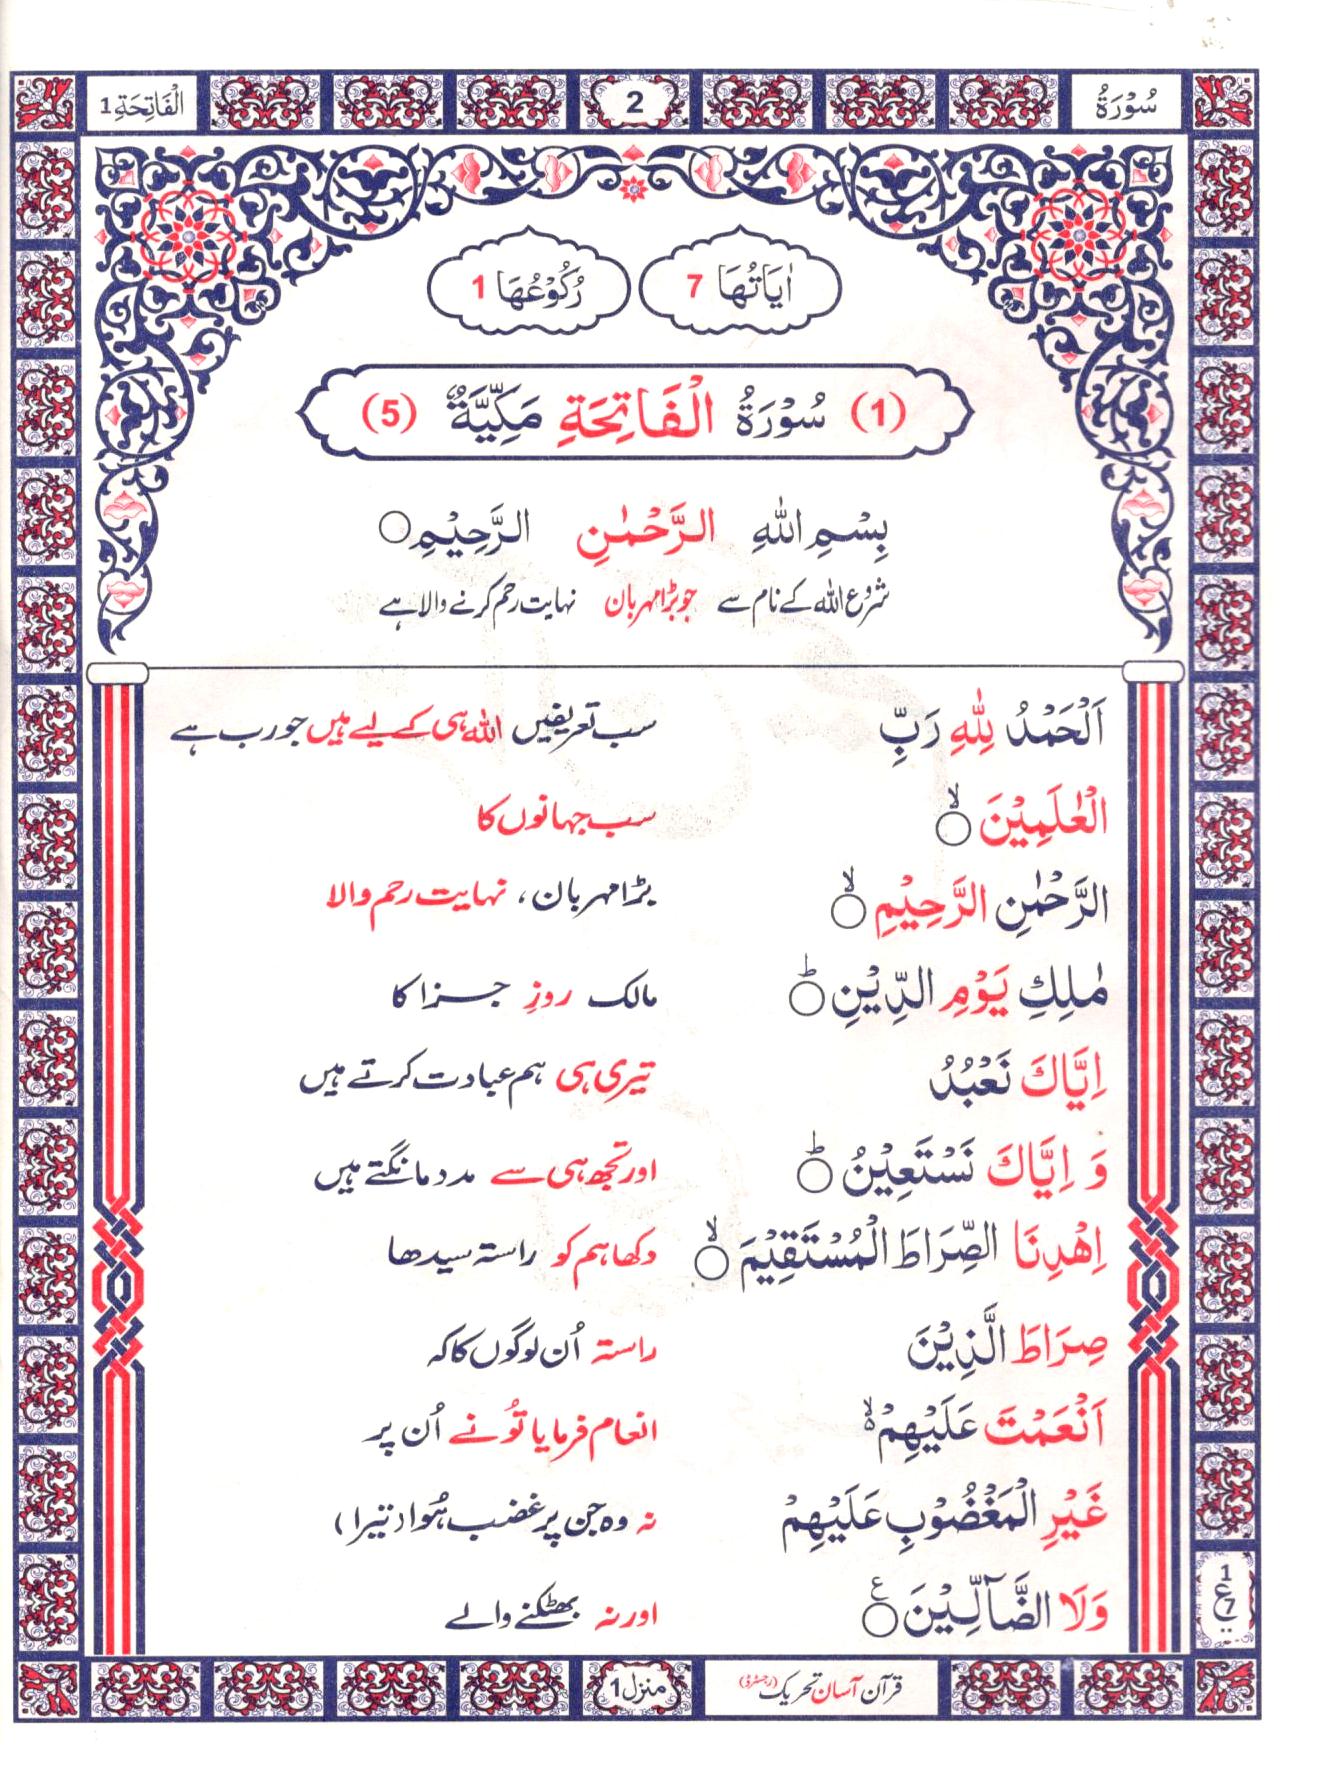 سُوْرَةُ 2 الْفَاتِحَةِ1
اٰيَاتُهَا 7 رُكُوْعُهَا 1
(1) سُوْرَةُ الْفَاتِحَةِ مَكِّيَّةٌ (5)
بِسْمِ اللّٰهِ الرَّحْمٰنِ الرَّحِيْمِ○
شروع اللہ کے نام سے جو بڑا مہربان نہایت رحم کرنے والا ہے
اَلْحَمْدُ لِلّٰهِ رَبِّ سب تعریفیں اللہ ہی کے لیے ہیں جو رب ہے
الْعٰلَمِيْنَ○ۙ سب جہانوں کا
الرَّحْمٰنِ الرَّحِيْمِ○ۙ بڑا مہربان، نہایت رحم والا
مٰلِكِ يَوْمِ الدِّيْنِ○ؕ مالک روزِ جزا کا
اِيَّاكَ نَعْبُدُ تیری ہی ہم عبادت کرتے ہیں
وَ اِيَّاكَ نَسْتَعِيْنُ○ؕ اور تجھ ہی سے مدد مانگتے ہیں
اِهْدِنَا الصِّرَاطَ الْمُسْتَقِيْمَ○ۙ دکھا ہم کو راستہ سیدھا
صِرَاطَ الَّذِيْنَ راستہ اُن لوگوں کا کہ
اَنْعَمْتَ عَلَيْهِمْ۬ۙ انعام فرمایا تُو نے اُن پر
غَيْرِ الْمَغْضُوْبِ عَلَيْهِمْ نہ وہ جن پر غضب ہُوا (تیرا)
وَلَا الضَّآلِّيْنَ○ع اور نہ بھٹکنے والے
1
ع
7
قرآن آسان تحریک (رجسٹرڈ) منزل1